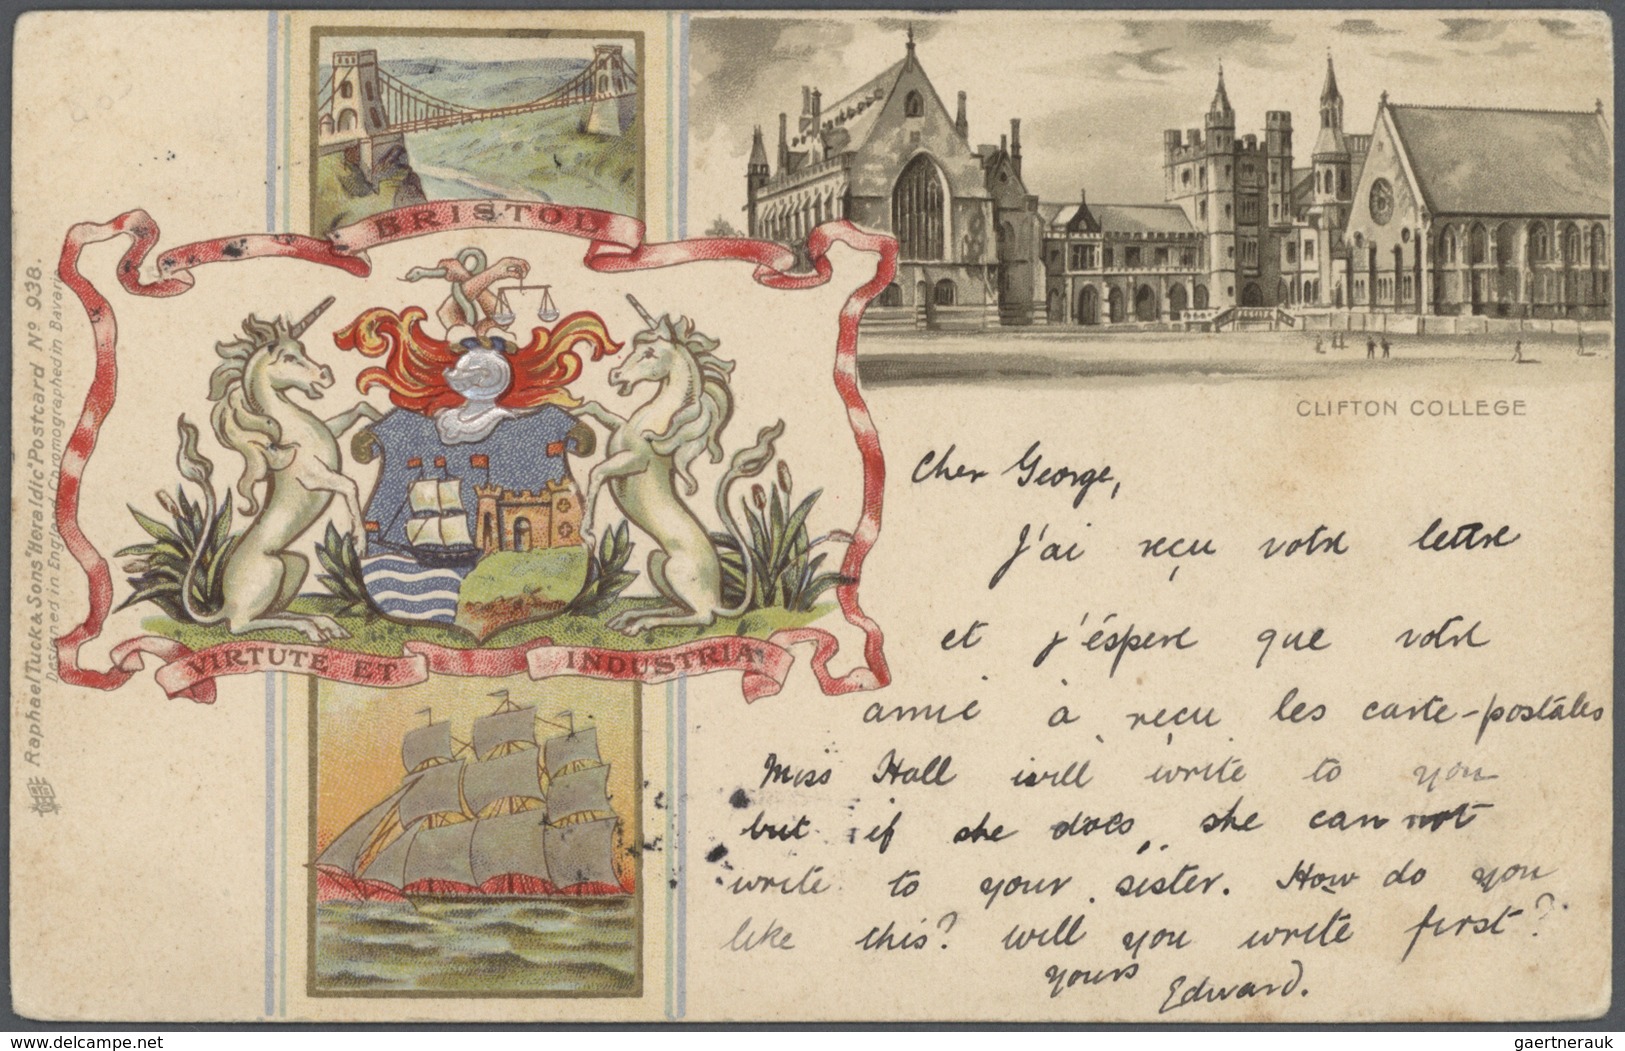 BRISTOL
VIRTUTE ET INDUSTRIA
CLIFTON COLLEGE
Raphael Tuck & Sons "Heraldic" Postcard Nº 938.
Designed in England Chromographed in Bavaria
Cher George,
J'ai reçu votre lettre
et j'éspere que votre
amié à reçu les carte-postáles
Miss Hall will write to you
but if she does, she can not
write to your sister. How do you
like this? will you write first?
yours
Edward.
www.delcampe.net
gaertnerauk